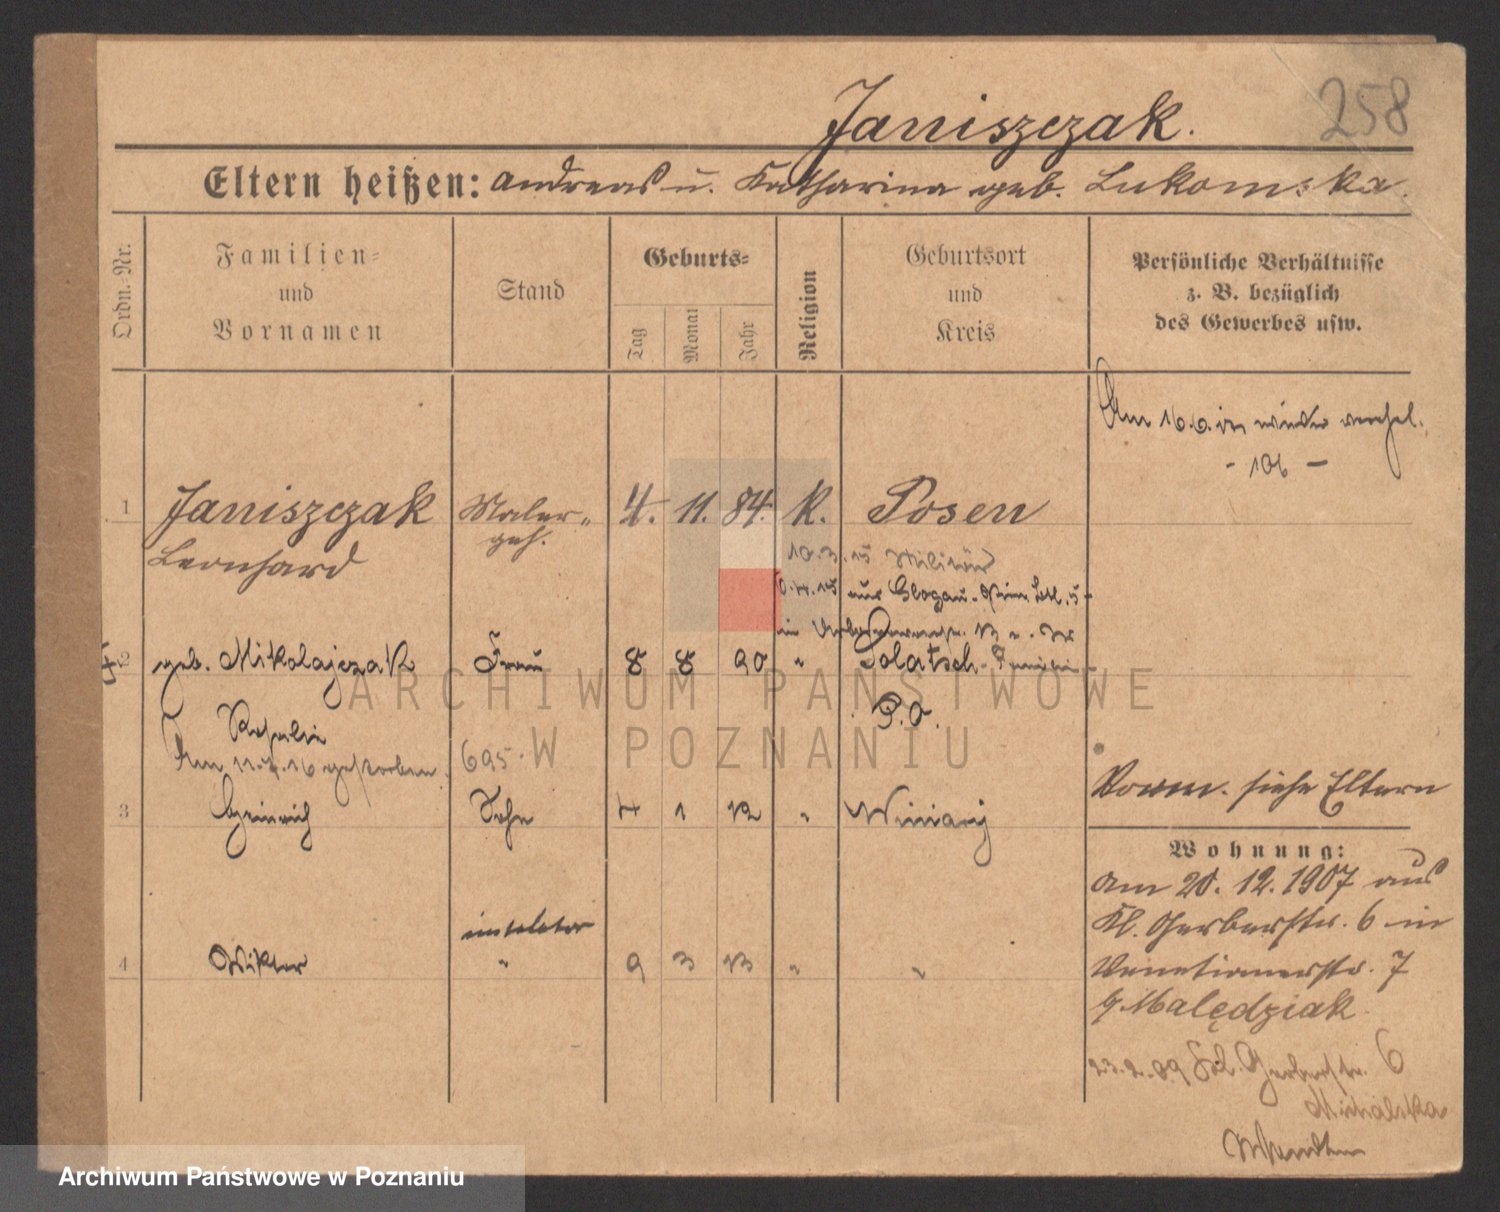 258
Janiszczak.
Eltern heißen: Andreas u. Katharina geb. Lukomska.
Ordn.-Nr.
Familien- und Vornamen
Stand
Geburts-
Tag
Monat
Jahr
Religion
Geburtsort und Kreis
Persönliche Verhältnisse
z. B. bezüglich
des Gewerbes usw.
Am 16.6. wieder verehel.
- 106 -
1 Janiszczak Maler- 4. 11. 84. K. Posen
Leonhard geh.
10.3.15 Militär
4.15 aus Glogau
in
2 geb. Mikolajczak Frau 8 8 90 " Solatsch
P.O.
Rosalie
Am 11.7.16 gestorben. 695.
Vorm. siehe Eltern
3 Heinrich Sohn 4 1 12 " Winiary
Wohnung:
Am 20.12.1907 aus
Kl. Gerberstr. 6 in
instalator
4 Wiktor " 9 3 13 " "
Venetianerstr. 7
b/ Malędziak
23.2.09 Kl. Gerberstr. 6
Michalska
ARCHIWUM PAŃSTWOWE
W POZNANIU
Archiwum Państwowe w Poznaniu